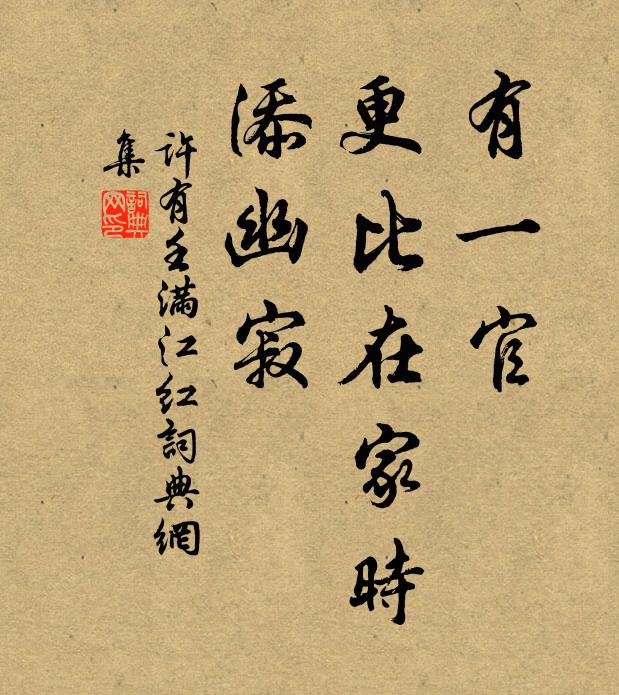 有一官
更比在家時
添幽寂
許有壬滿江紅詞典網
集
詞典网印